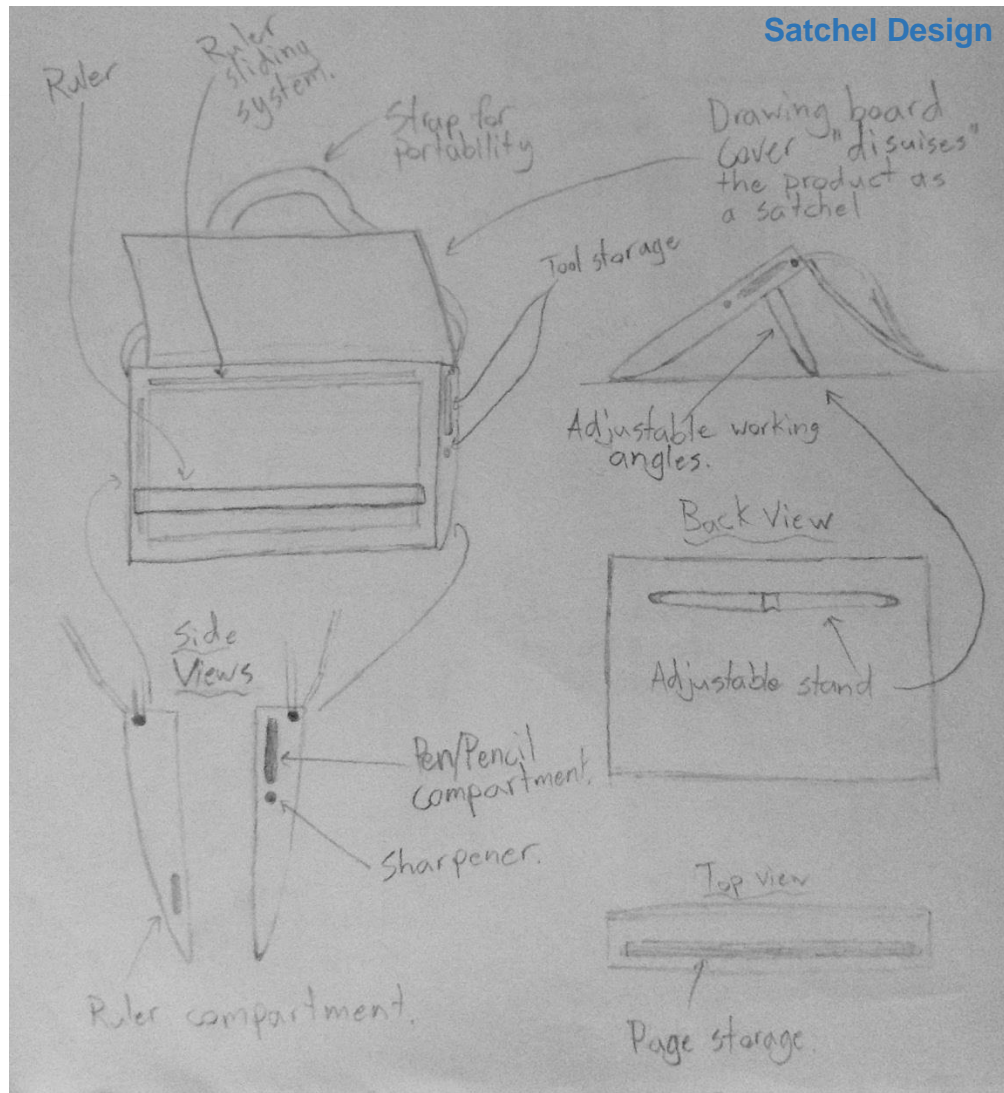 Satchel Design
Ruler
Ruler
sliding
system.
Strap for
portability
Drawing board
cover "disuises"
the product as
a satchel
Tool storage
Adjustable working
angles.
Back View
Adjustable stand
Side
Views
Pen/Pencil
compartment.
Sharpener.
Ruler compartment.
Top view
Page storage.